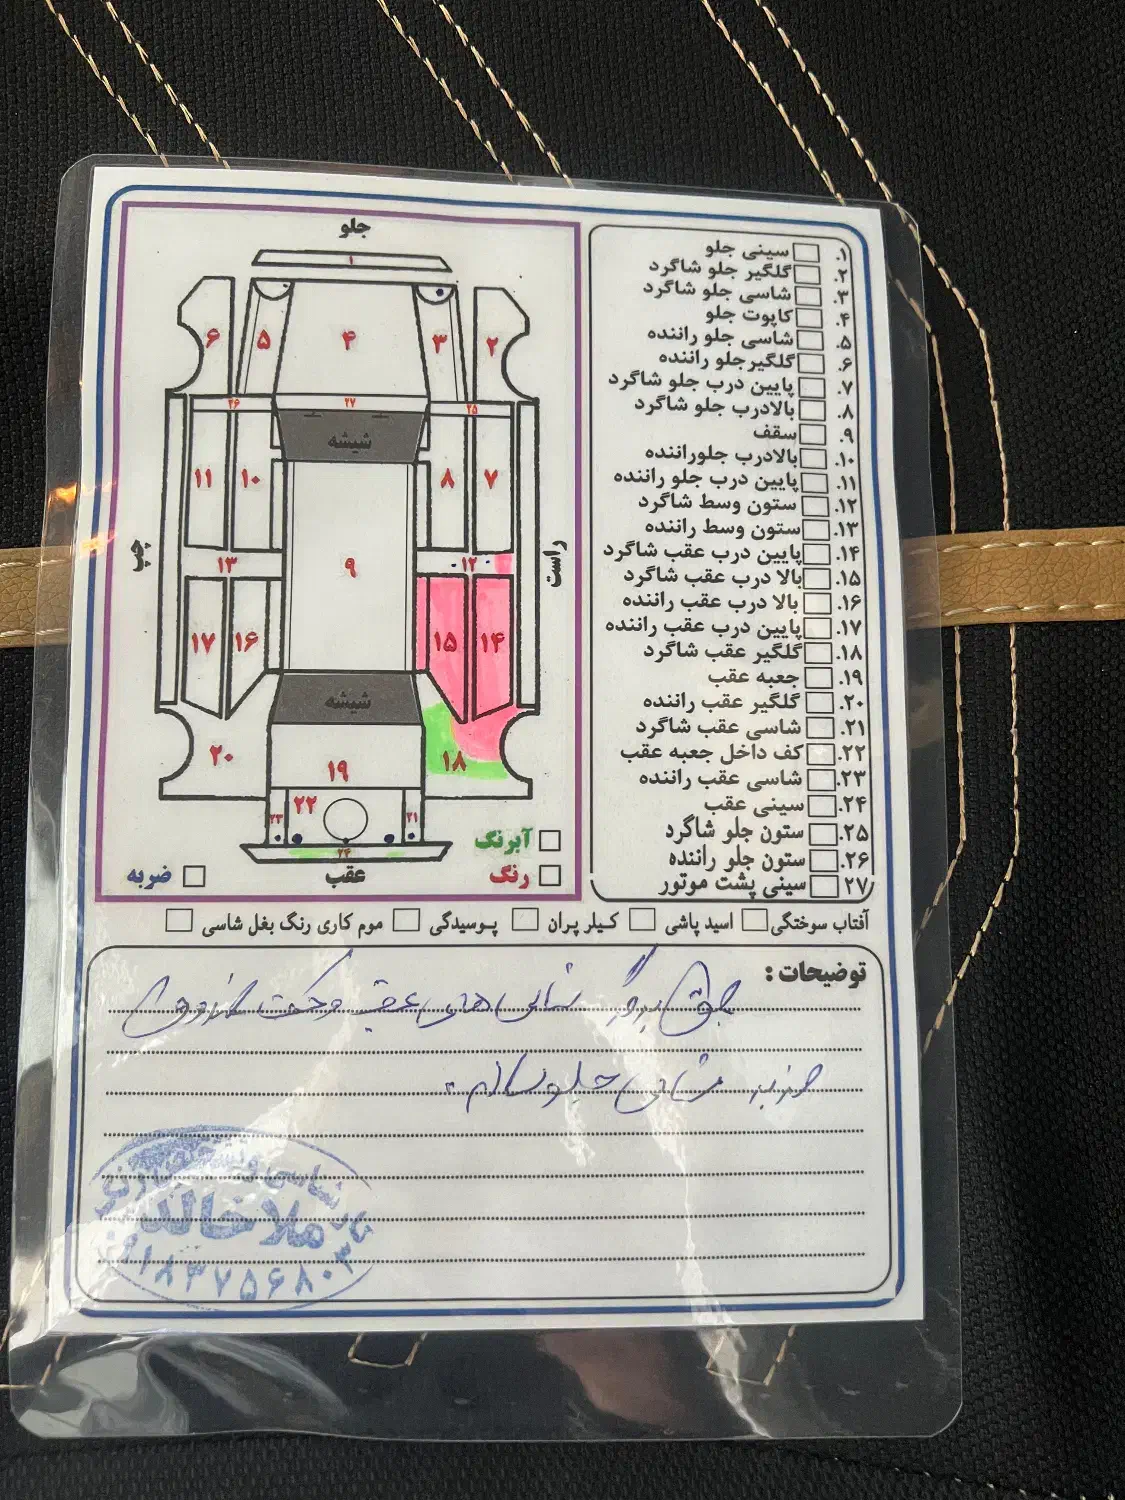 جلو
۱
۶
۵
۴
۳
۲
۲۶
۲۷
۲۵
شیشه
۱۱
۱۰
۸
۷
چپ
۱۳
۹
۱۲
راست
۱۷
۱۶
۱۵
۱۴
شیشه
۲۰
۱۹
۱۸
۲۳
۲۲
۲۱
۲۴
آبرنگ
ضربه
عقب
رنگ
۱. سینی جلو
۲. گلگیر جلو شاگرد
۳. شاسی جلو شاگرد
۴. کاپوت جلو
۵. شاسی جلو راننده
۶. گلگیرجلو راننده
۷. پایین درب جلو شاگرد
۸. بالادرب جلو شاگرد
۹. سقف
۱۰. بالادرب جلوراننده
۱۱. پایین درب جلو راننده
۱۲. ستون وسط شاگرد
۱۳. ستون وسط راننده
۱۴. پایین درب عقب شاگرد
۱۵. بالا درب عقب شاگرد
۱۶. بالا درب عقب راننده
۱۷. پایین درب عقب راننده
۱۸. گلگیر عقب شاگرد
۱۹. جعبه عقب
۲۰. گلگیر عقب راننده
۲۱. شاسی عقب شاگرد
۲۲. کف داخل جعبه عقب
۲۳. شاسی عقب راننده
۲۴. سینی عقب
۲۵. ستون جلو شاگرد
۲۶. ستون جلو راننده
۲۷. سینی پشت موتور
آفتاب سوختگی اسید پاشی کیلر پران پوسیدگی موم کاری رنگ بغل شاسی
توضیحات :
عقب
ضربه جلو سالم
ملاخالد
۰۹۱۸۳۷۵۶۸۰۳